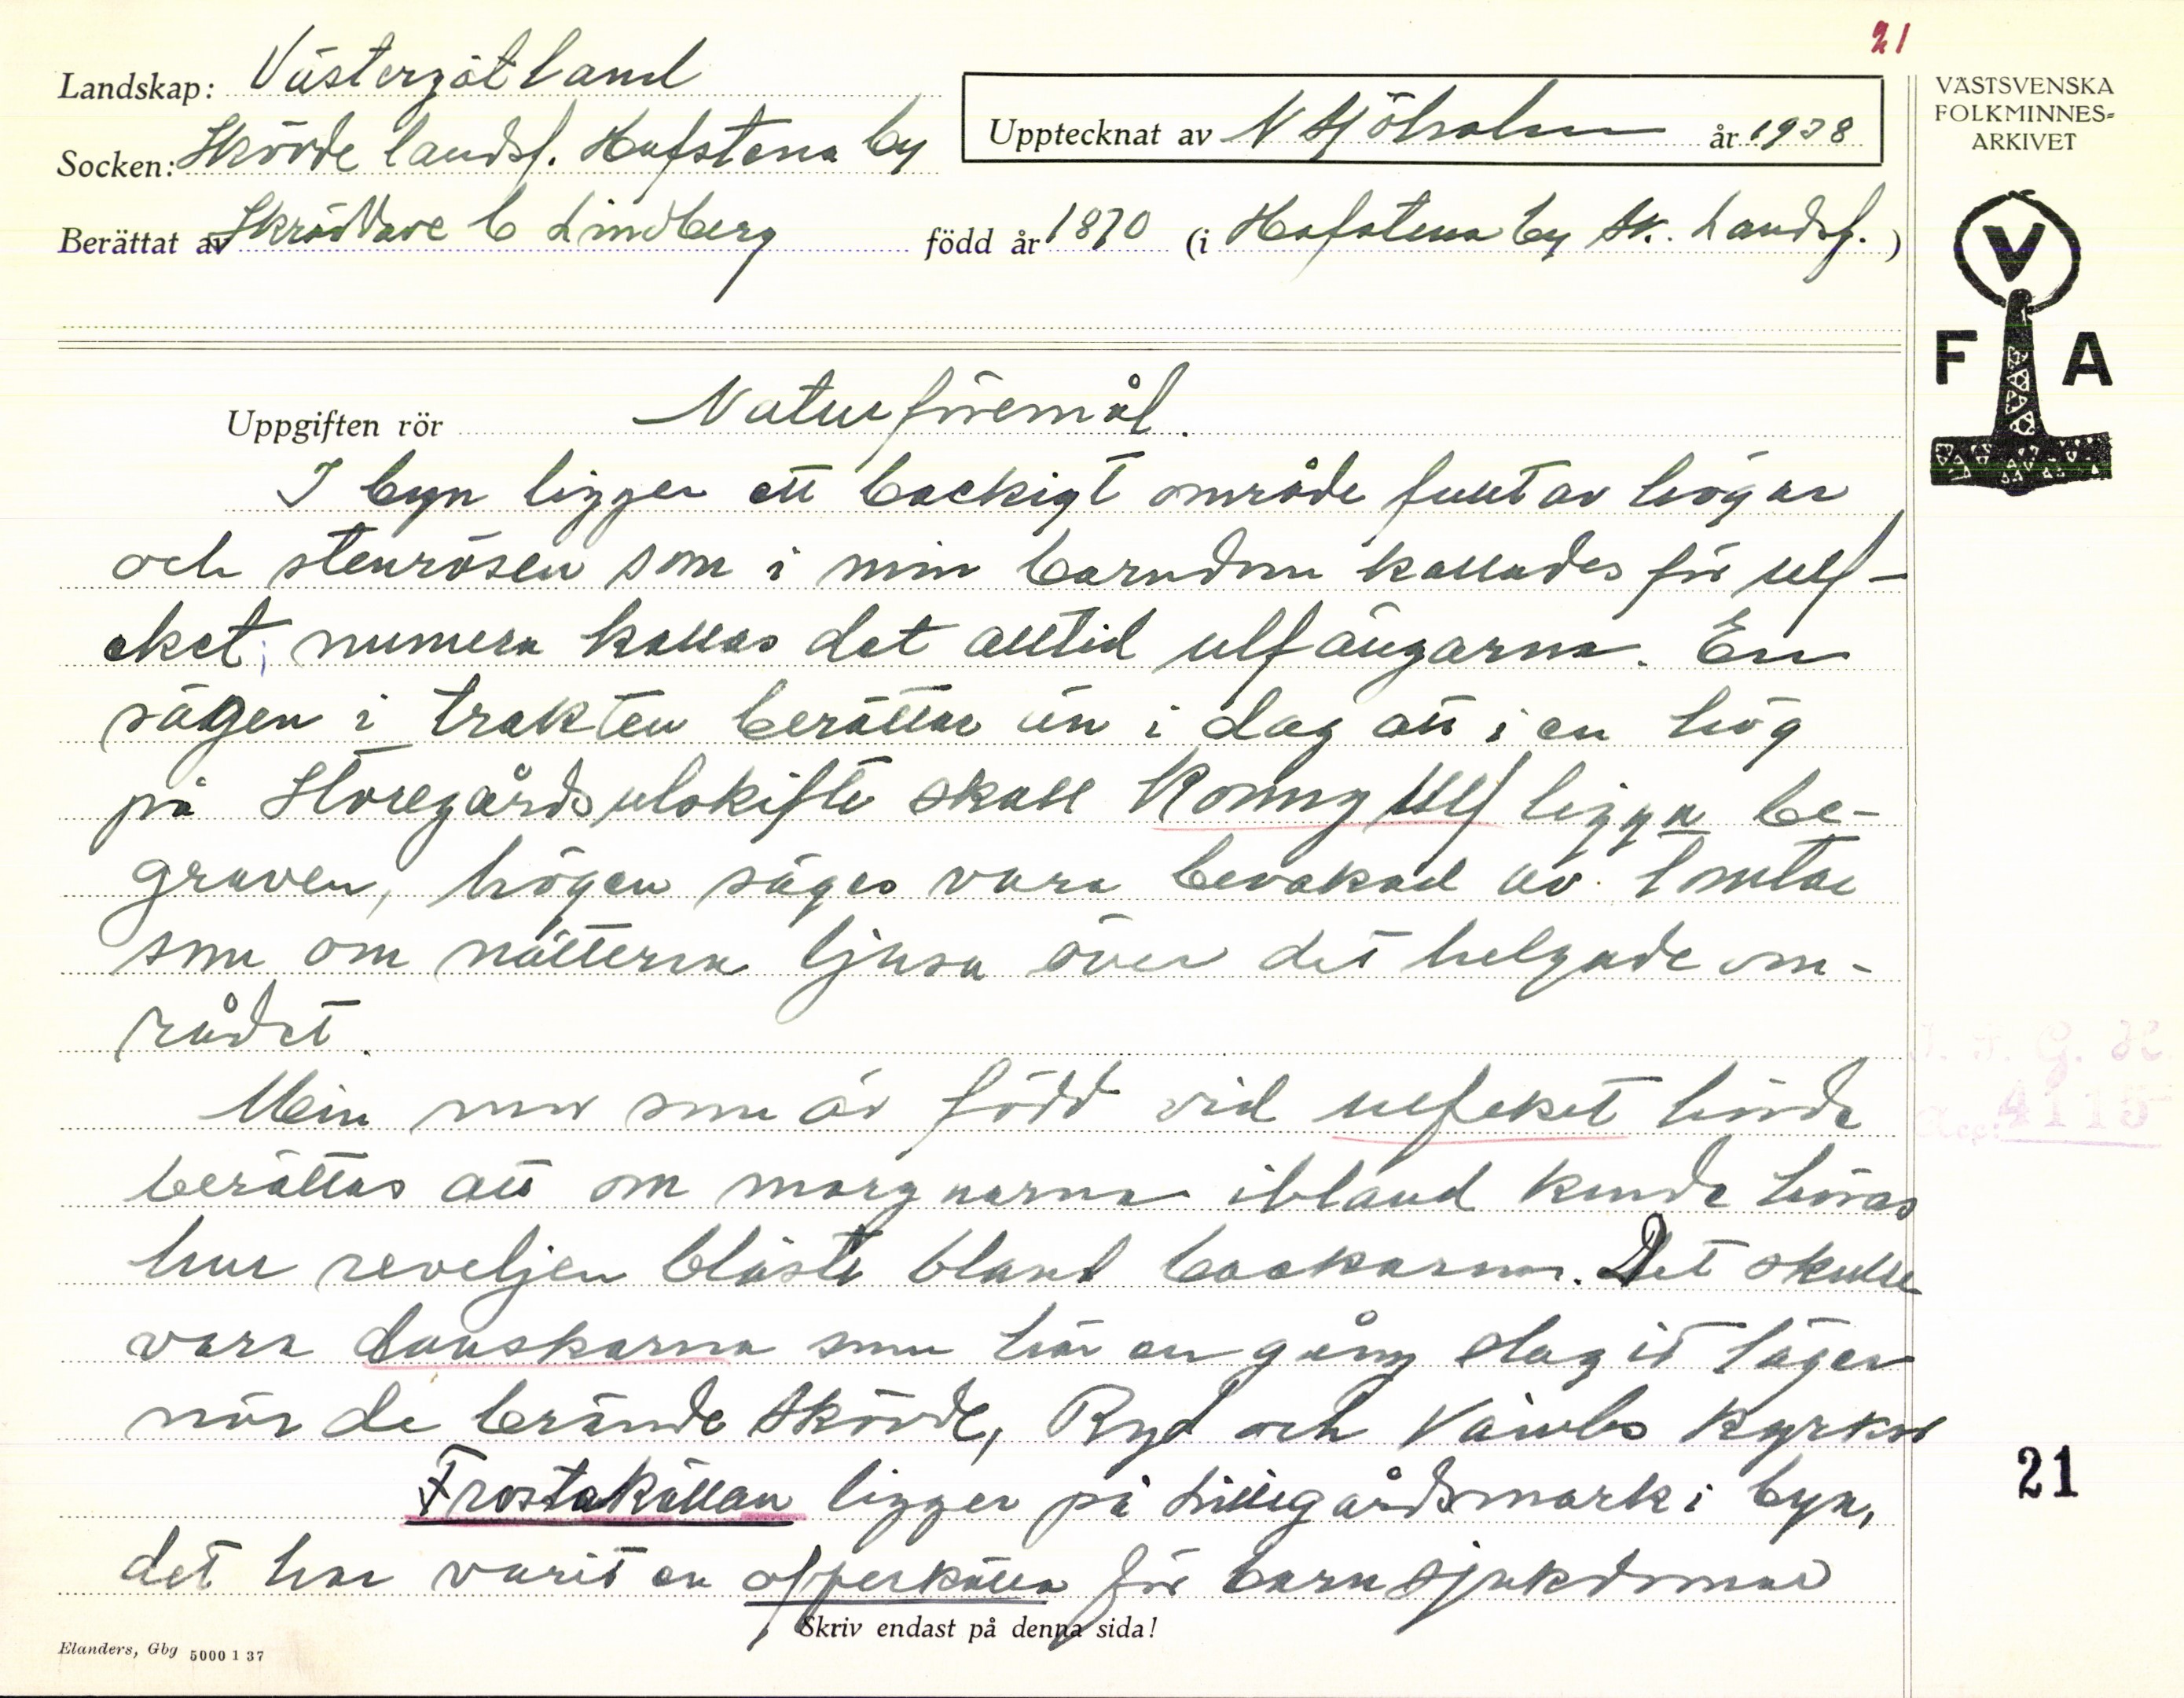 21
Landskap: Västergötland
Socken: Skövde landsf. Hafstena by
Upptecknat av N Sjöholm år 1938
Berättat av Skräddare C Lindberg född år 1870 (i Hafstena by Sk. Landsf.)
VÄSTSVENSKA
FOLKMINNES-
ARKIVET
V
F A
Uppgiften rör Naturföremål.
I byn ligger ett backigt område fullt av högar
och stenrösen som i min barndom kallades för Ulf-
eket; numera kallas det alltid ulfängarna. En
sägen i trakten berättar än i dag att i en hög
på Storegårds utskifte skall Konung Ulf ligga be-
graven, högen säges vara bevakad av tomtar
som om nätterna ljusa över det helgade om-
rådet.
Min mor som är född vid ulfeket hörde
berättas att om morgnarna ibland kunde höras
hur reveljen blåste bland backarna. Det skulle
vara danskarna som här en gång slagit läger
när de brände Skövde, Ryd och Våmbs kyrkor
Frostakällan ligger på Lillegårds mark i byn,
det har varit en offerkälla för barnsjukdomar
Skriv endast på denna sida!
Elanders, Gbg 5000 1 37
4115
21